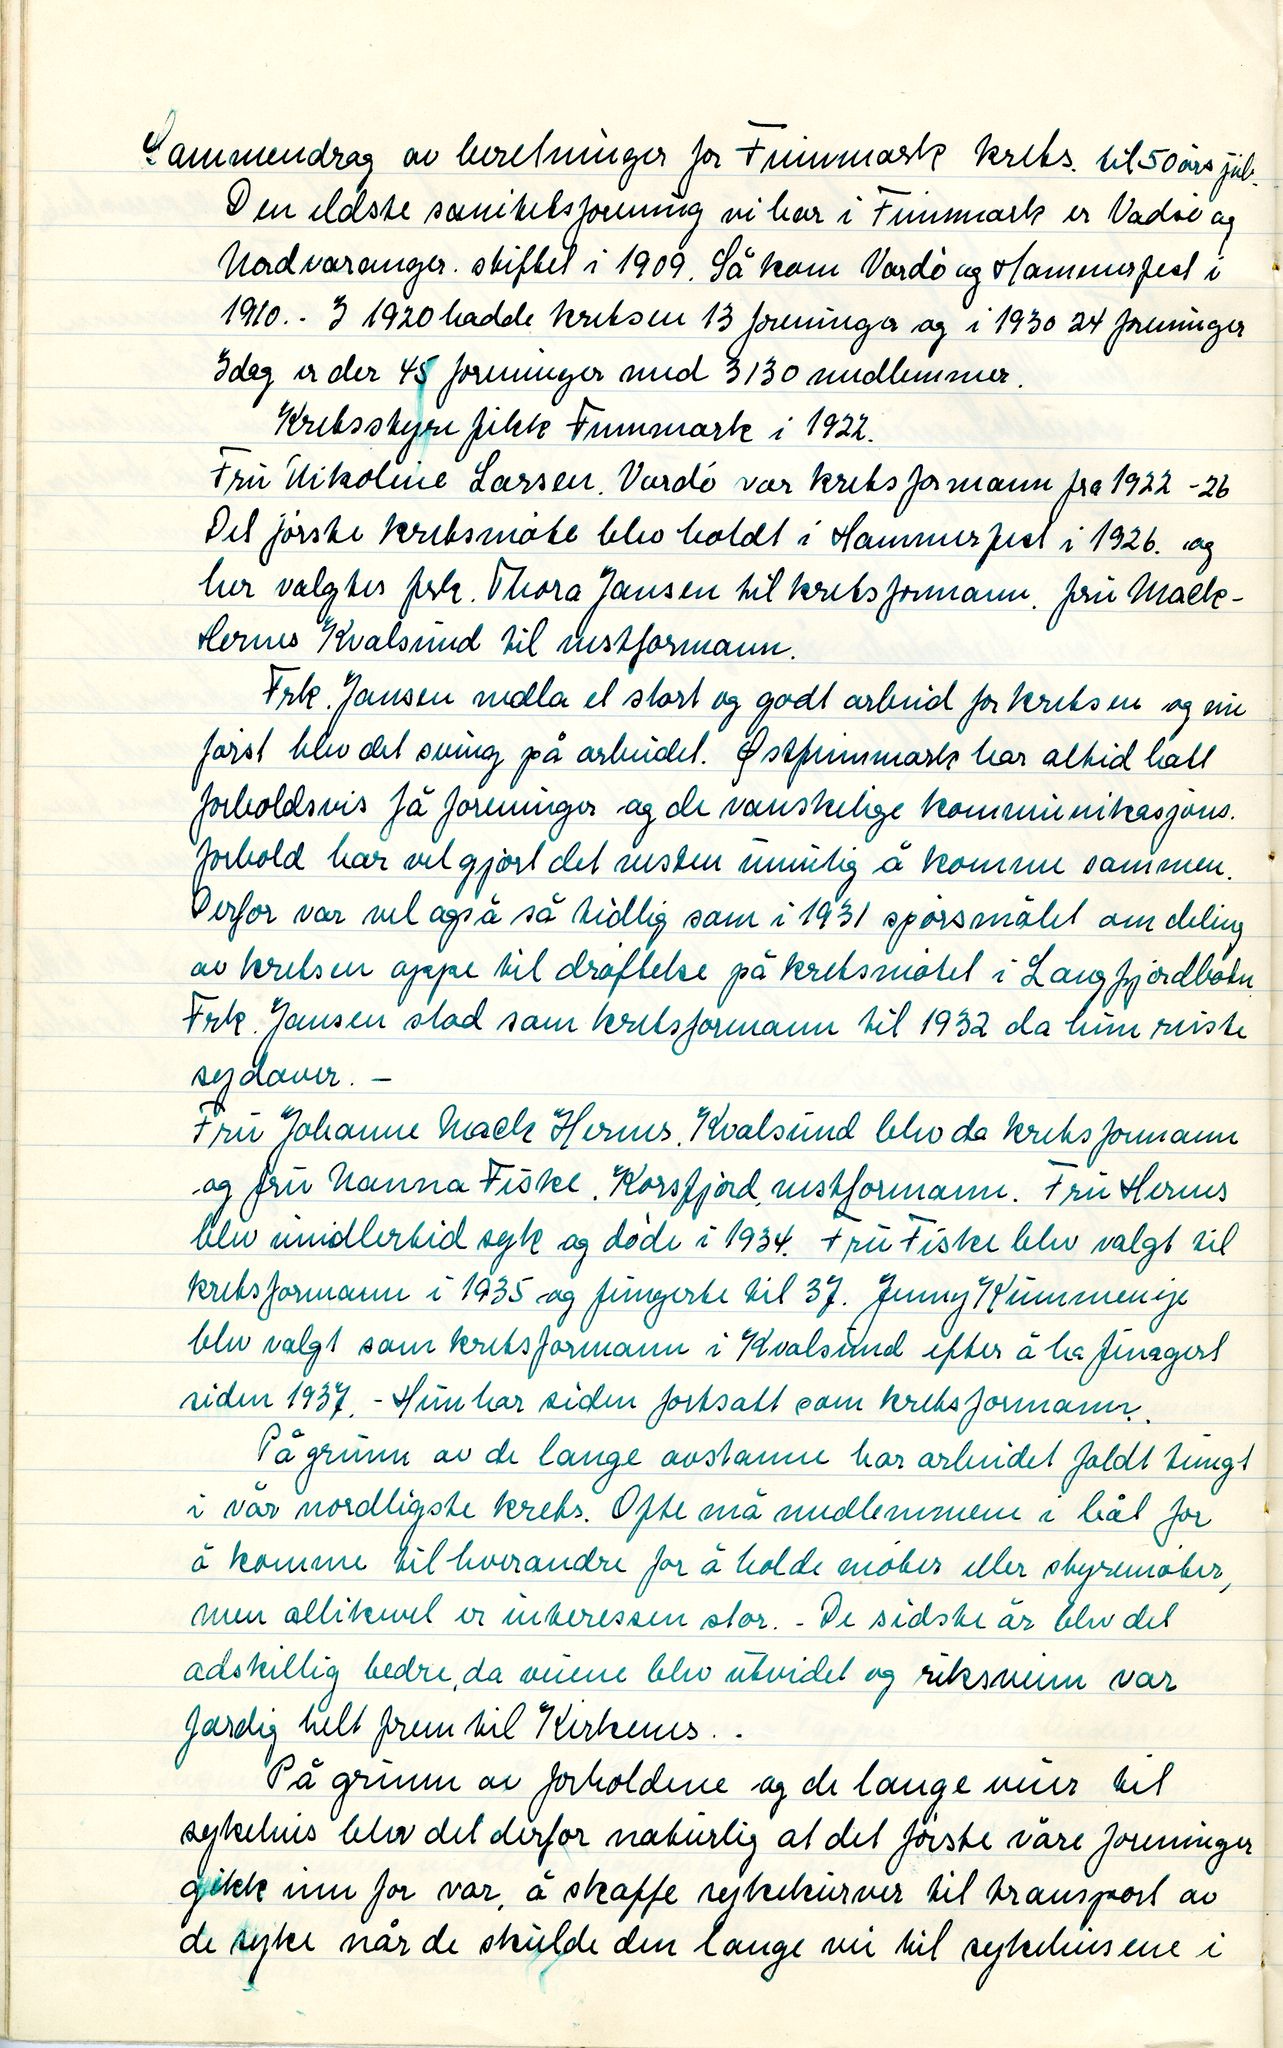 Sammendrag av beretninger for Finnmark krets. til 50 års jub.
Den eldste sanitetsforening vi har i Finnmark er Vadsø og
Nordvaranger. stiftet i 1909. Så kom Vardö og Hammerfest i
1910. - I 1920 hadde kretsen 13 foreninger og i 1930 24 foreninger
Idag er der 45 foreninger med 3130 medlemmer.
Kretsstyre fikk Finnmark i 1922.
Fru Nikoline Larsen. Vardö var kretsformann fra 1922 - 26
Det förste kretsmöte blev holdt i Hammerfest i 1926. og
her valgtes frk. Thora Jansen til kretsformann. fru Mack-
Hernes Kvalsund til vestformann.
Frk. Jansen nedla et stort og godt arbeid for kretsen og nu
först blev det sving på arbeidet. Østfinnmark har altid hatt
forholdsvis få foreninger og de vanskelige kommunikasjons.
forhold har vel gjort det nesten umulig å komme sammen.
Derfor var vel også så tidlig som i 1931 spörsmålet om deling
av kretsen oppe til dröftelse på kretsmötet i Langfjordbotn.
Frk. Jansen stod som kretsformann til 1932 da hun reiste
sydover. -
Fru Johanne Mack Hernes, Kvalsund blev da kretsformann
og fru Nanna Fiske, Korsfjord, nestformann. Fru Hernes
blev imidlertid syk og döde i 1934. Fru Fiske blev valgt til
kretsformann i 1935 og fungerte til 37. Jenny Kummeneje
blev valgt som kretsformann i Kvalsund efter å ha fungert
siden 1937. - Hun har siden fortsatt som kretsformann.
På grunn av de lange avstanne har arbeidet faldt tungt
i vår nordligste krets. Ofte må medlemmene i båt for
å komme til hverandre for å holde möter eller styremöter,
men allikevel er interessen stor. - De sidste år blev det
adskillig bedre, da veiene blev utvidet og riksveien var
færdig helt frem til Kirkenes. .
På grunn av forholdene og de lange veier til
sykehus blev det derfor naturlig at det förste våre foreninger
gikk inn for var, å skaffe sykekurver til transport av
de syke når de skulde den lange vei til sykehusene i